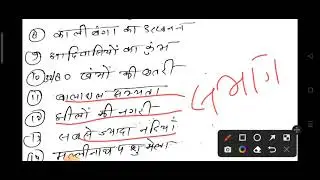 ⑧ कालीबंगा का उत्खनन
⑨ आदिवासियों का कुंभ
⑩ 80 खंभों की छतरी
⑪ बालाथल सभ्यता
⑫ झीलों की नगरी
⑬ सबसे ज्यादा नदियाँ
⑭ मल्लीनाथ पशु मेला
संभाग